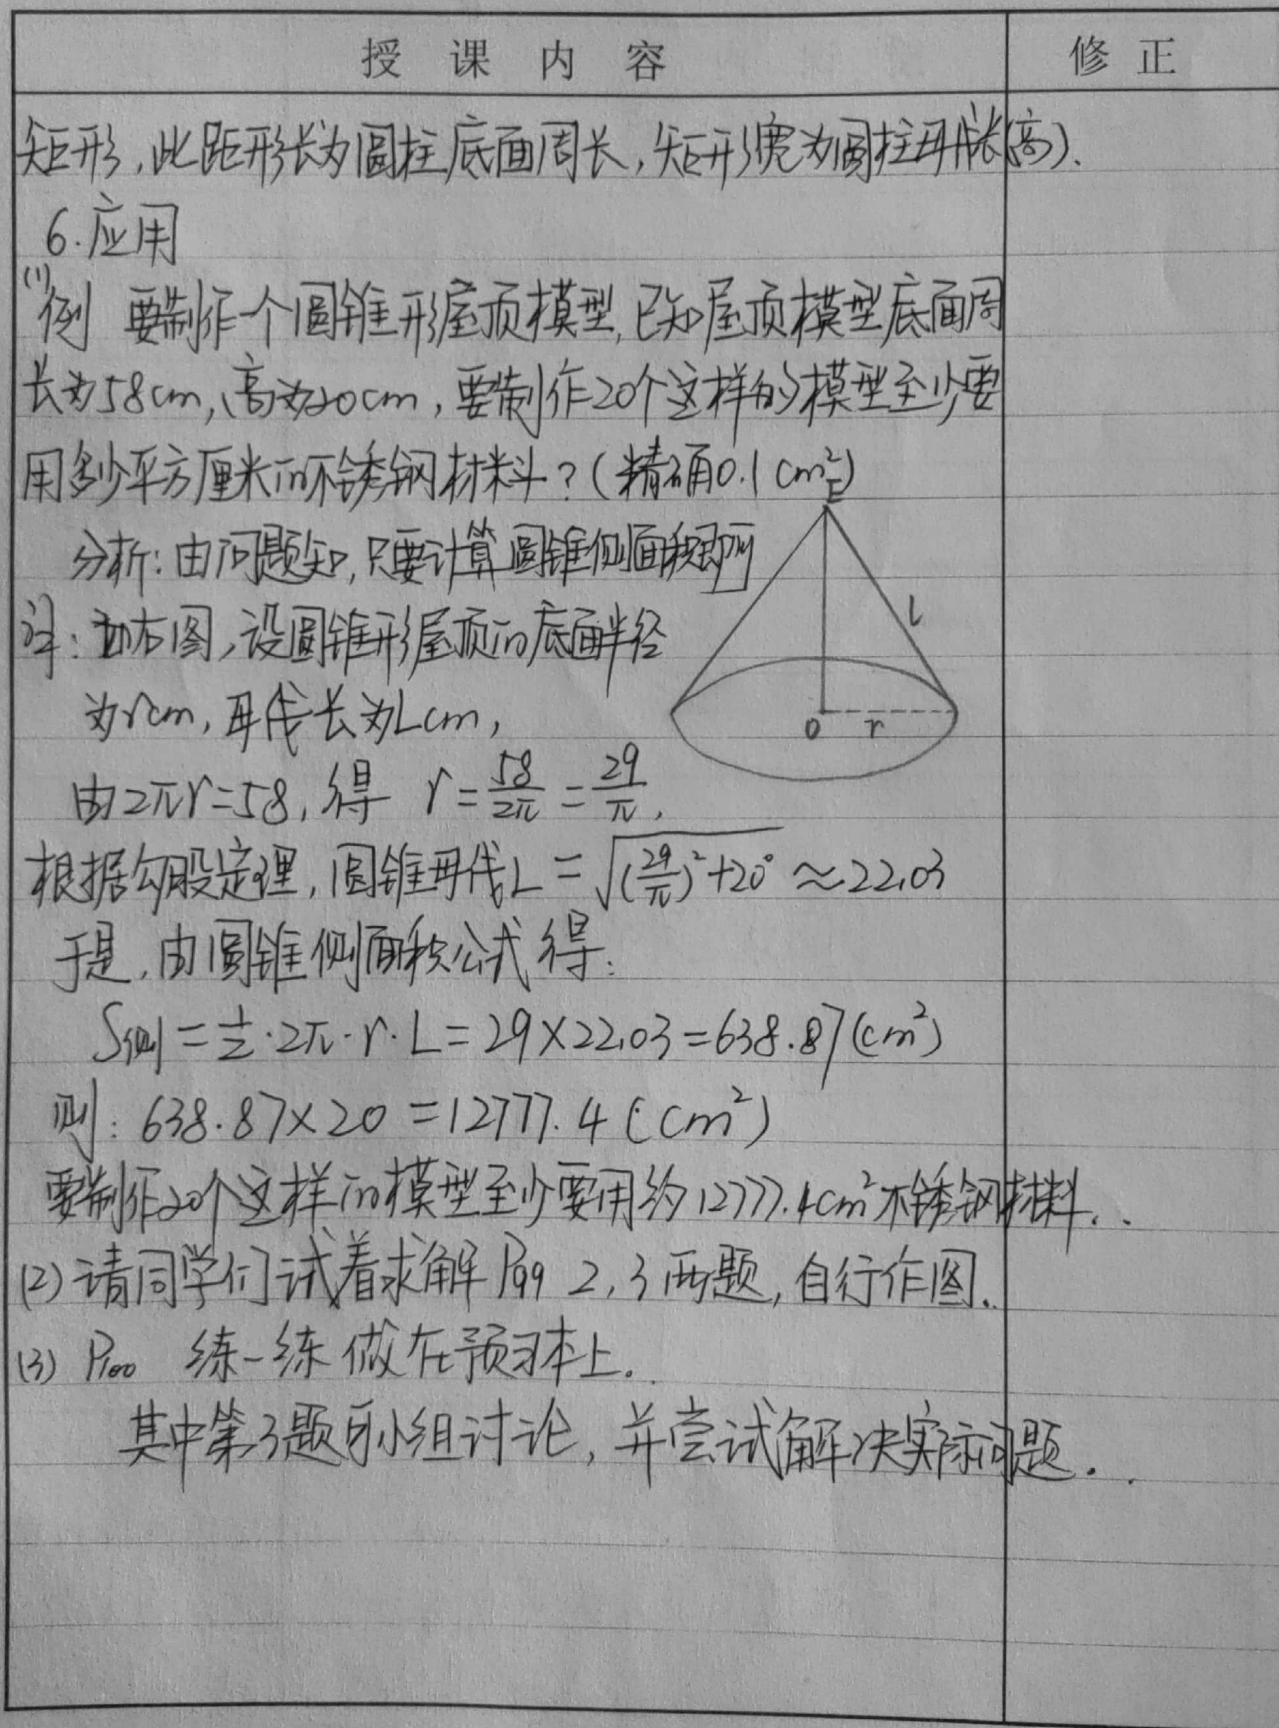 授课内容 修正
矩形,此距形长为圆柱底面周长,矩形宽为圆柱母线长(高).
6.应用
(1)例 要制作一个圆锥形屋顶模型,已知屋顶模型底面周
长为58cm,高为20cm,要制作20个这样的模型至少要
用多少平方厘米的不锈钢材料?(精确0.1cm²)
分析:由问题知,只要计算圆锥侧面积即可
E
l
O r
解:如右图,设圆锥形屋顶的底面半径
为rcm,母线长为Lcm,
由2πr=58,得 r=58/2π=29/π,
根据勾股定理,圆锥母线L=√((29/π)²+20²)≈22.03
于是,由圆锥侧面积公式得:
S侧=1/2·2π·r·L=29×22.03=638.87(cm²)
则:638.87×20=12777.4(cm²)
要制作20个这样的模型至少要用约12777.4cm²不锈钢材料.
(2)请同学们试着求解P99 2,3两题,自行作图.
(3)P100 练一练做在预习本上.
其中第3题可小组讨论,并尝试解决实际问题.